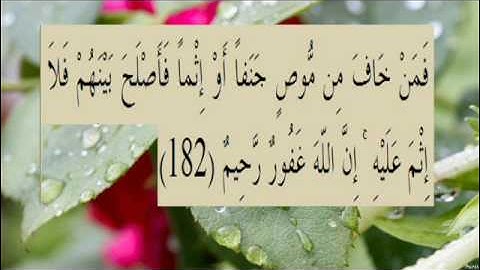 فَمَنْ خَافَ مِن مُّوصٍ جَنَفاً أَوْ إِثْماً فَأَصْلَحَ بَيْنَهُمْ فَلاَ
إِثْمَ عَلَيْهِ ۚ إِنَّ اللّهَ غَفُورٌ رَّحِيمٌ (182)